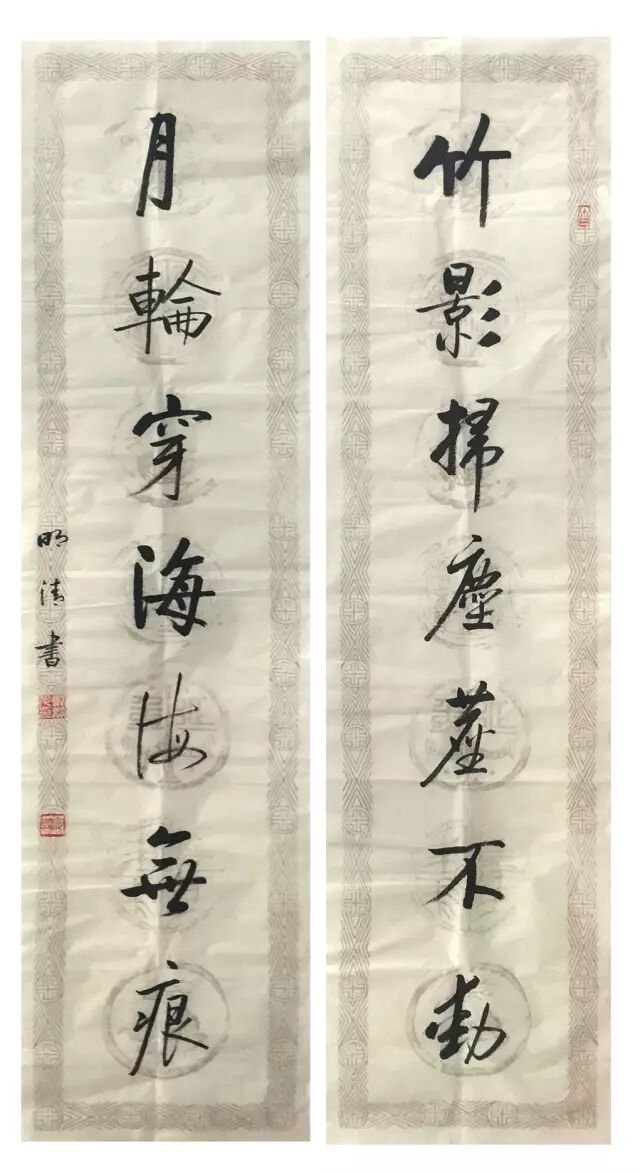 竹影掃塵塵不動
月輪穿海海無痕
明清書